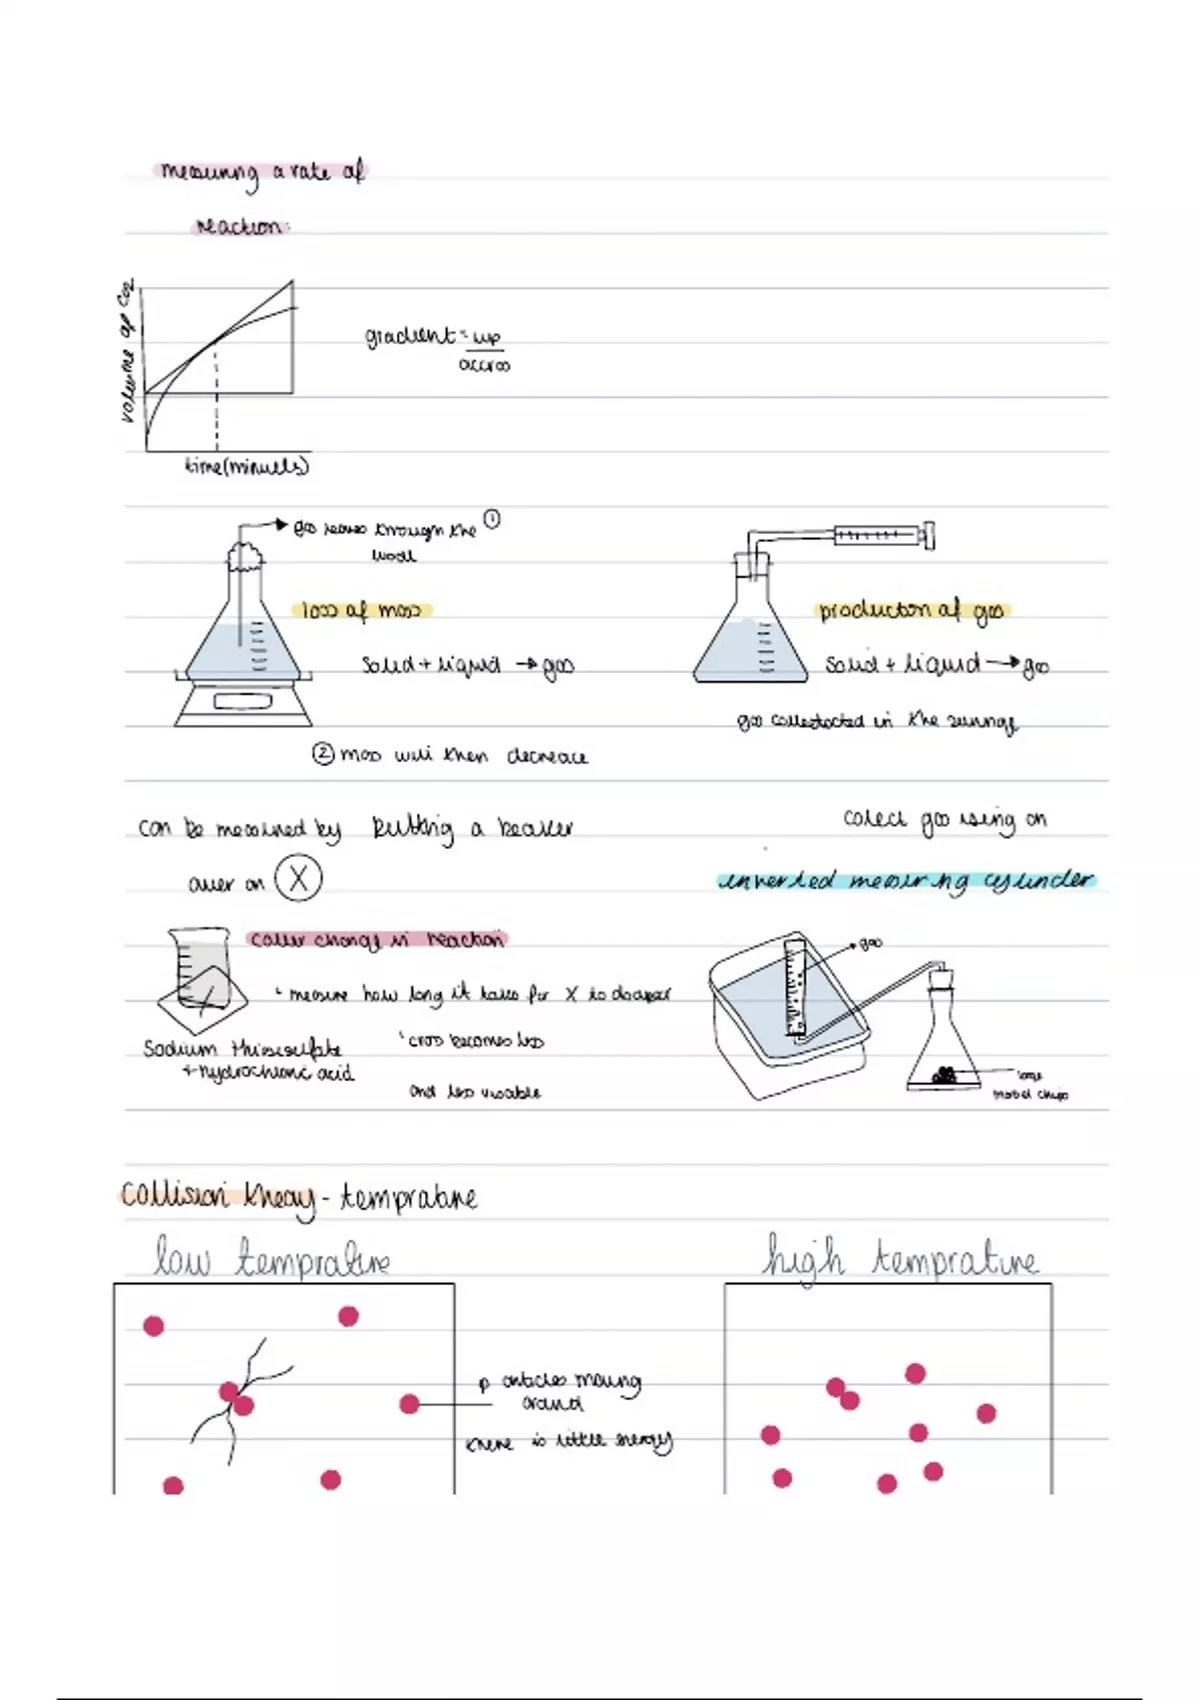 measuring a rate of
reaction:
volume of CO2
gradient = up
accross
time (minuets)
gas leaves through the ①
wool
loss of mass
solid + liquid → gas
② mass will then decrease
production of gas
solid + liquid → gas
gas collectected in the syringe
can be measured by putting a beaker
over an X
colour change in reaction
measure how long it takes for X to
cross becomes less
and less visable
Sodium thiosulfate
+ hydrochloric acid
collect gas using an
inverted measuring cylinder
gas
marbel chips
Collision theory - temprature
low temprature
particles moving
around
there is little energy
high temprature